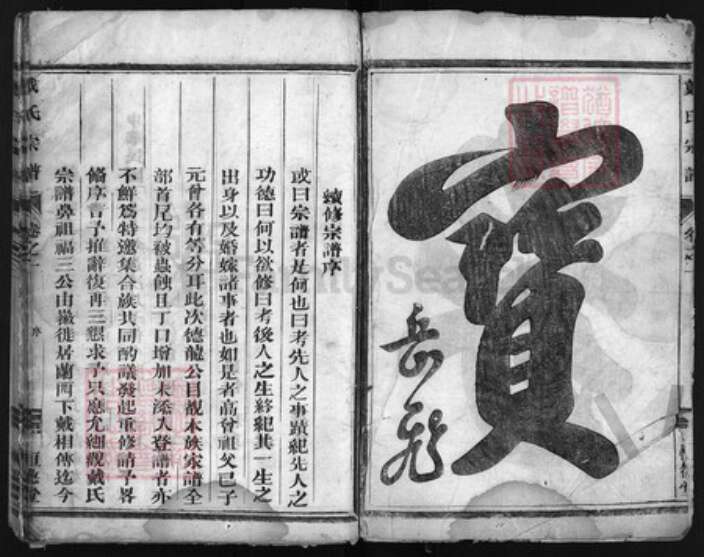 寶
岳飛
續修宗譜序
或曰宗譜者是何也曰考先人之事蹟紀先人之
功德曰何以欲修曰考後人之生終紀其一生之
出身以及婚嫁諸事者也如是者高曾祖父己子
元曾各有等分耳此次德龍公目覩本族家譜全
部首尾均被蟲蝕且丁口增加未添入登譜者亦
不鮮爲特邀集合族共同酌議發起重修請予畧
修序言予推辭復再三懇求予只應允細觀戴氏
宗譜鼻祖福三公由徽徙居蘭西下戴相傳迄今
戴氏宗譜
卷之一
序